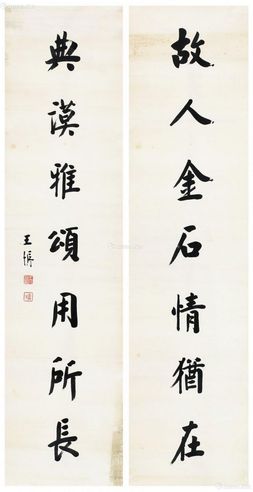 故人金石情猶在
典謨雅頌用所長
王愼